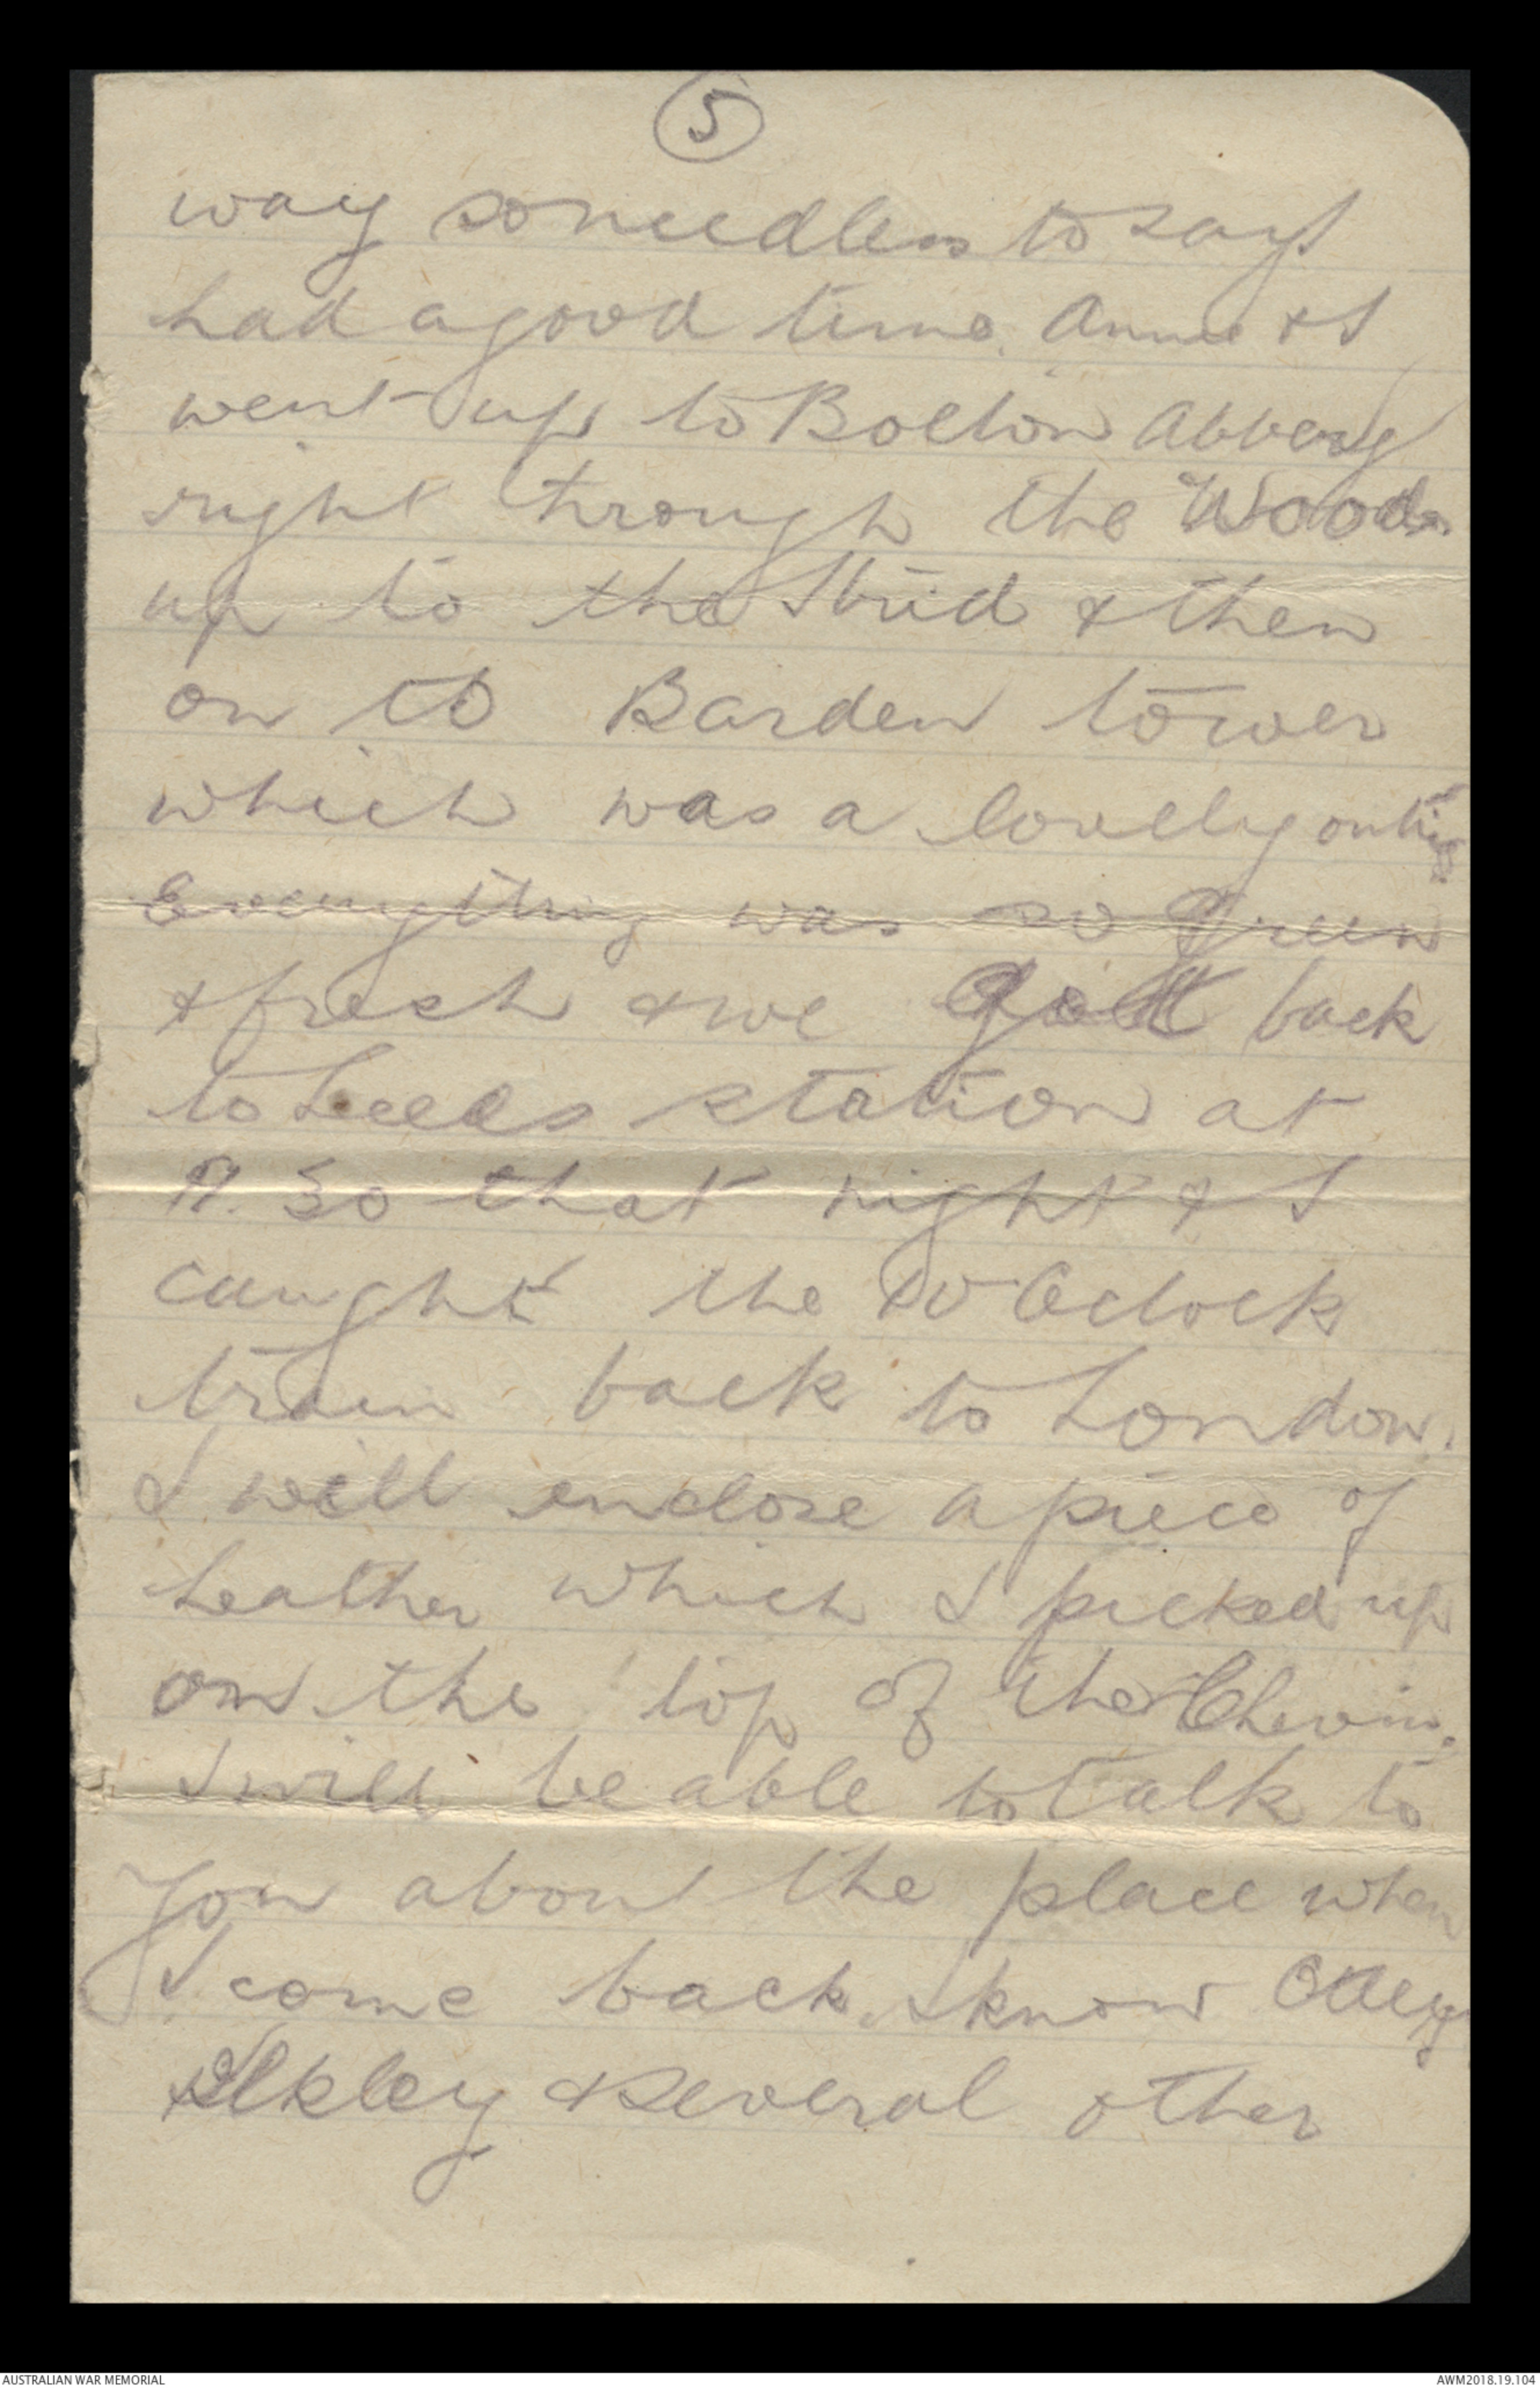 5
way so needless to say I
had a good time. Annie & I
went up to Bolton Abbey
right through the Woods
up to the Strid & then
on to Barden tower
which was a lovely outing
Everything was so Green
& fresh & we got back
to Leeds station at
9.30 that night & I
caught the 10 Oclock
train back to London.
I will enclose a piece of
heather which I picked up
on the top of the Chevin,
I will be able to talk to
you about the place when
I come back. I know Otley
Ilkley & several other
AUSTRALIAN WAR MEMORIAL
AWM2018.19.104